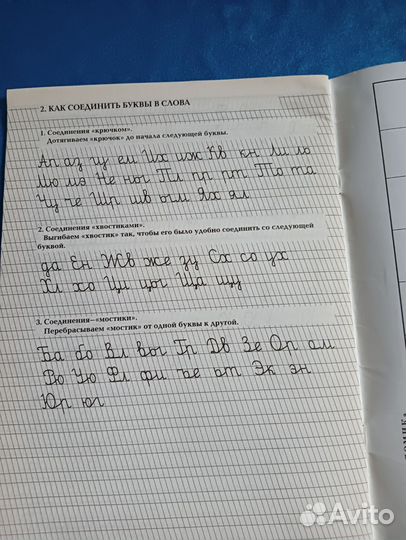 2. КАК СОЕДИНИТЬ БУКВЫ В СЛОВА
1. Соединения «крючком».
Дотягиваем «крючок» до начала следующей буквы.
Ап аз гу ем Их иж Кв кн Ли ль
Лю лэ Не ны Пл пр пт По та
Цу че Шр шв ъм Ях ял
2. Соединения «хвостиками».
Выгибаем «хвостик» так, чтобы его было удобно соединить со следующей
буквой.
да Ен Жв же зу Сх со ух
Хл хо Цл цы Ща щу
3. Соединения–«мостики».
Перебрасываем «мостик» от одной буквы к другой.
Ба бо Вл вы Гр Дв Зе Ор ом
Во Ую Фл фи ъе от Эк эн
Юр юг
Avito